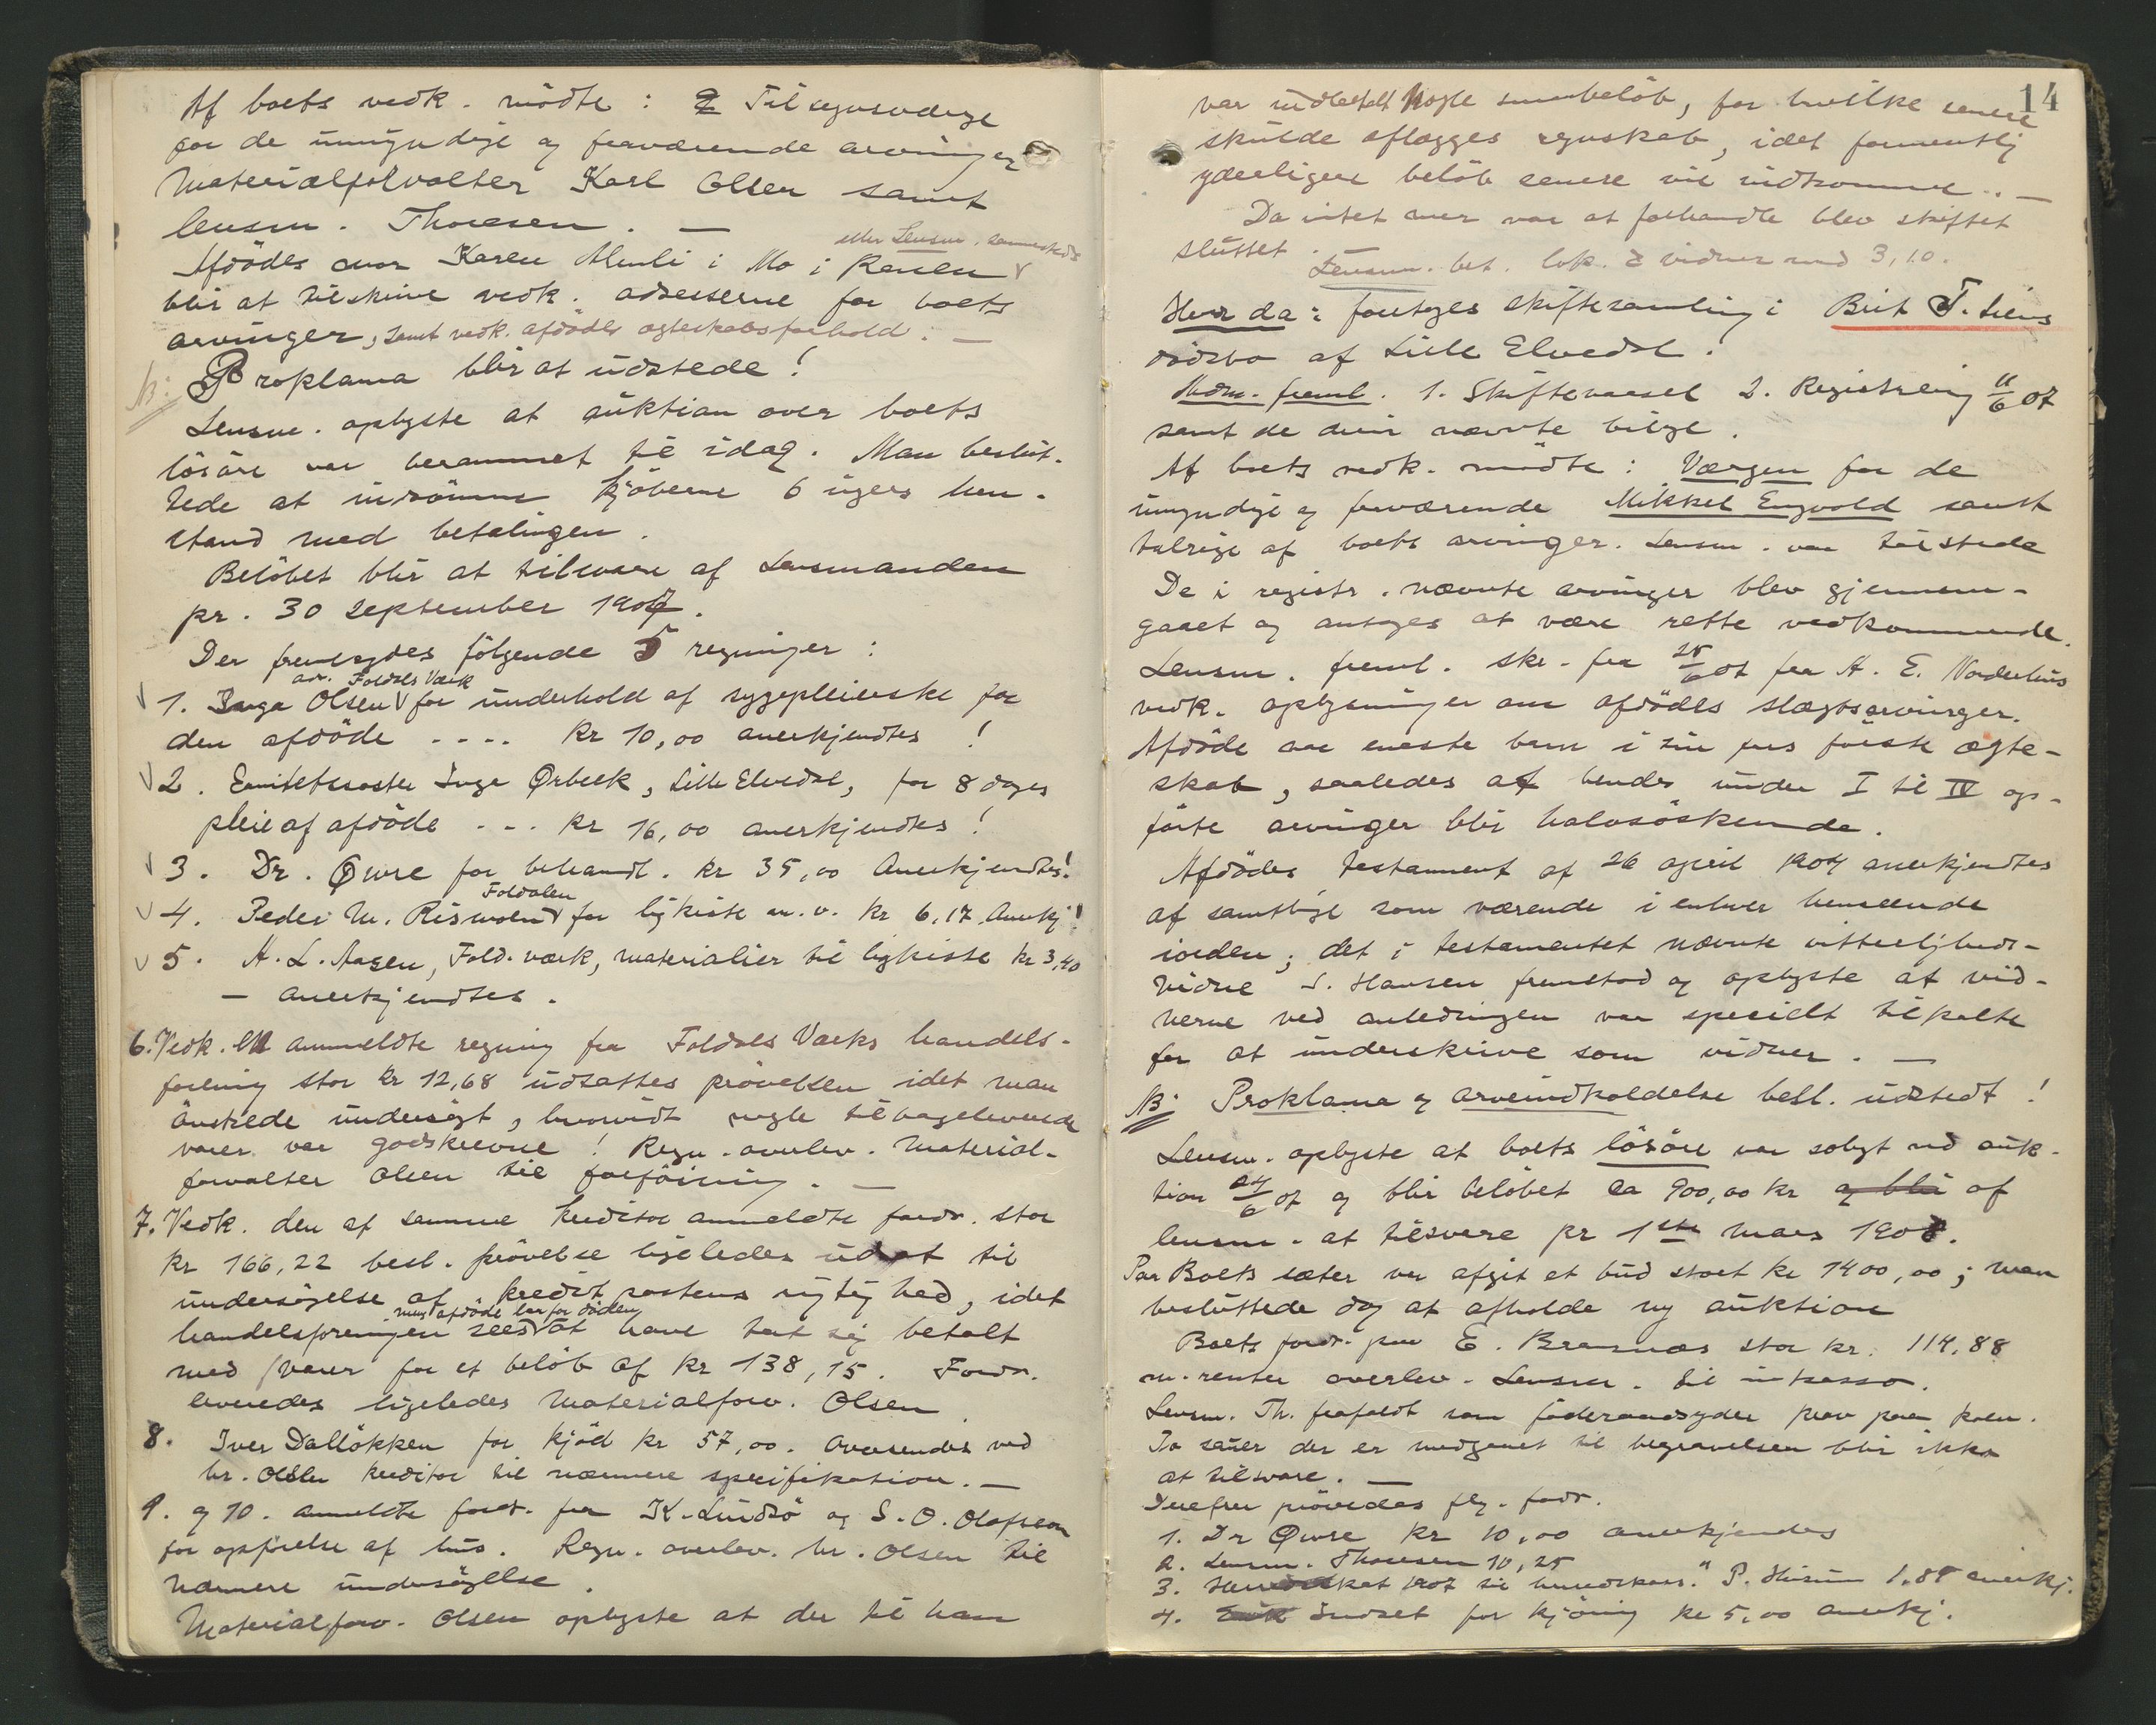 Af boets vedk. mödte: Tilsynsværge
for de umyndige og fraværende arvinger
Materialforvalter Karl Olsen samt
lensm. Thoresen. —
eller Lensm. sammesteds
Afdödes mor Karen Menli i Mo i Ranen
blir at tilskrive vedk. adresserne for boets
arvinger, samt vedk. afdödes ægteskabsforhold. —
NB: Proklama blir at udstede!
Lensm. oplyste at auktion over boets
lösöre var berammet til idag. Man beslut-
tede at indrömme kjöberne 6 ugers hen-
stand med betalingen.
Belöbet blir at tilsvare af Lensmanden
pr. 30 september 1907.
Der fremlagdes fölgende 5 regninger:
adr. Foldals Værk
1. Inga Olsen for underhold af sygepleierske for
den afdöde .... kr 10,00 anerkjendtes!
2. Sanitetssöster Inga Ørbeck, Lille Elvedal, for 8 dages
pleie af afdöde ... kr 16,00 anerkjendtes!
3. Dr. Øwre for behandl. kr 35,00 Anerkjendtes!
Foldalen
4. Peder M. Rismoen for ligkiste m.v. kr 6,17 Anerkj!
5. H. L. Aasen, Fold. værk, materialier til ligkiste kr 3,40
— anerkjendtes.
6. Vedk. en anmeldte regning fra Foldals Værks handels-
forening stor kr 12,68 udsattes prövelsen idet man
önskede undersögt, hvorvidt nogle tilbageleverede
varer var godskrevne! Regn. overlev. Material-
forvalter Olsen til forföining. —
7. Vedk. den af samme kreditor anmeldte fordr. stor
kr 166,22 besl. prövelse ligeledes udsat til
undersögelse af kreditpostens rigtighed, idet
mens afdöde laa for döden
handelsforeningen sees at have tat sig betalt
med varer for et belöb af kr 138,15. Fordr.
leveredes ligeledes Materialforv. Olsen.
8. Iver Dallökken for kjöd kr 57,00. Oversendes ved
hr. Olsen kreditor til nærmere specifikation. —
9. og 10. anmeldte fordr. fra K. Lundsö og S. O. Olafsen
for opförelse af hus. Regn. overlev. hr. Olsen til
nærmere undersögelse.
Materialforv. Olsen oplyste at der til ham
14
var indbetalt nogle smaabelöb, for hvilke senere
skulde aflægges regnskab, idet formentlig
yderligere belöb senere vil indkomme. —
Da intet mer var at forhandle blev skiftet
sluttet.
Lensm. bet. lok. & vidner med 3,10.
Hvor da: foretoges skiftesamling i Brit T. Liens
dödsbo af Lille Elvedal.
Adm. freml. 1. Skiftevarsel 2. Registrering 11/6 07
samt de deri nævnte bilge.
Af boets vedk. mödte: Værgen for de
umyndige og fraværende Mikkel Engvold samt
talrige af boets arvinger. Lensm. var tilstede
De i registr. nævnte arvinger blev gjennem-
gaaet og antoges at være rette vedkommende.
Lensm. freml. skr. fra 25/6 07 fra A. E. Norderhus
vedk. oplysninger om afdödes slægtsarvinger.
Afdöde var eneste barn i sin fars förste ægte-
skab, saaledes at hendes under I til IV op-
förte arvinger blir halvsöskende.
Afdödes testament af 26 april 1904 anerkjendtes
af samtlige som værende i enhver henseende
iorden; det i testamentet nævnte vitterligheds-
vidne S. Hansen fremstod og oplyste at vid-
nerne ved anledningen var specielt tilkaldte
for at underskrive som vidner. —
NB: Proklama og arveindkaldelse besl. udstedt!
Lensm. oplyste at boets lösöre var solgt ved auk-
tion 24/6 07 og blir belöbet ca 900,00 kr og blir af
lensm. at tilsvare pr 1ste mars 1908.
Paa Boets sæter var afgit et bud stort kr 1400,00; man
besluttede dog at afholde ny auktion
Boets fordr. paa E. Brænnæs stor kr. 114.88
m. renter overlev. Lensm. til inkasso.
Lensm. Th. frafaldt som föderaadsyder krav paa koen.
To sauer der er medgaaet til begravelsen blir ikke
at tilsvare. —
Derefter prövedes flg. fordr.
1. Dr Øwre kr 10,00 anerkjendes
2. Lensm. Thoresen 10,25 "
3. skat 1907 til herredskass. P. Husum 1,85 anerkj.
4. Indset for kjöring kr 5,00 anerkj.